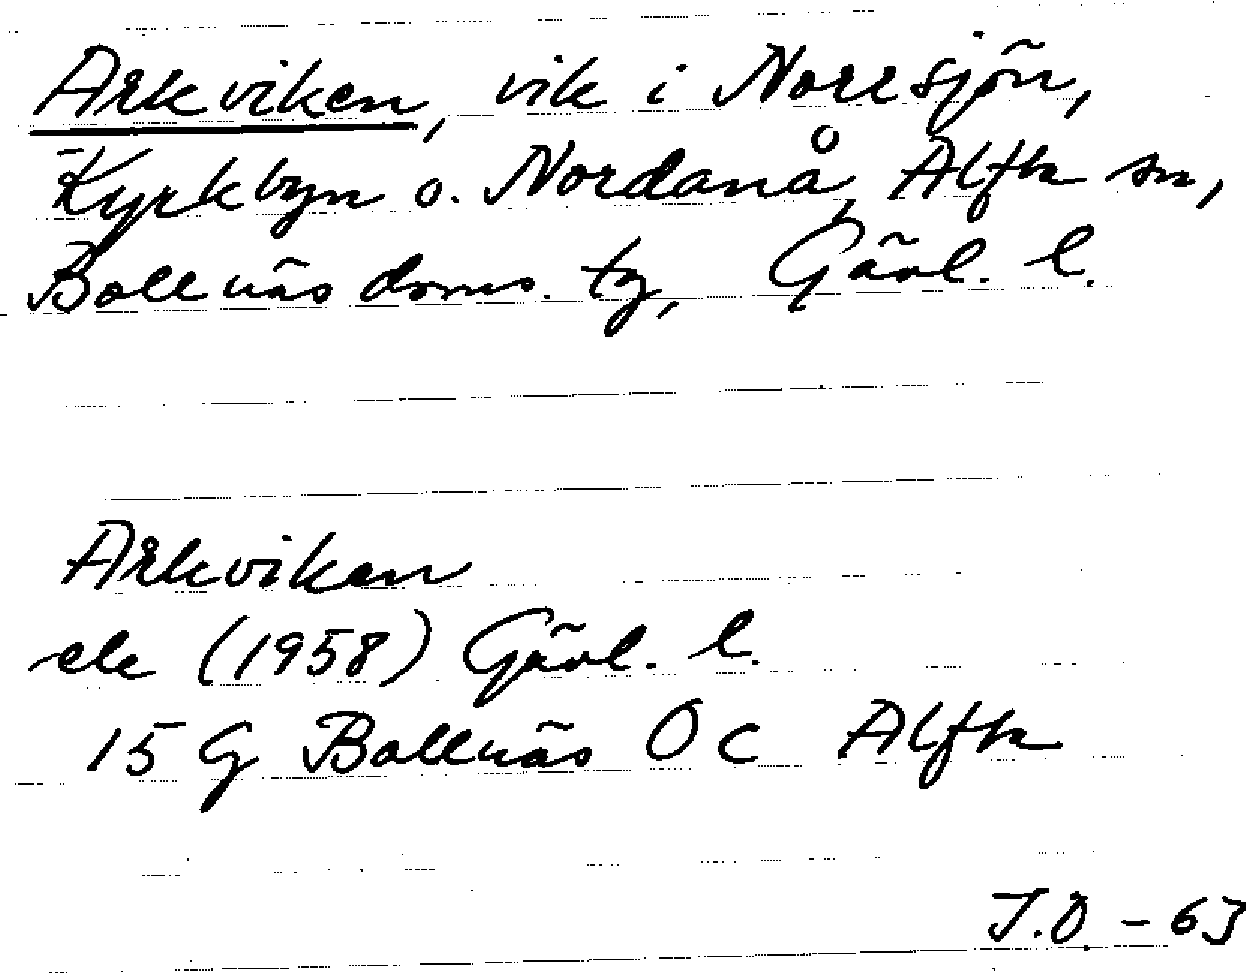 Arkviken, vik i Norrsjön,
Kyrkbyn o. Nordanå, Alfta sn,
Bollnäs doms. tg, Gävl. l.
Arkviken
ek (1958) Gävl. l.
15 G Bollnäs Ö c Alfta
J.Ö - 63